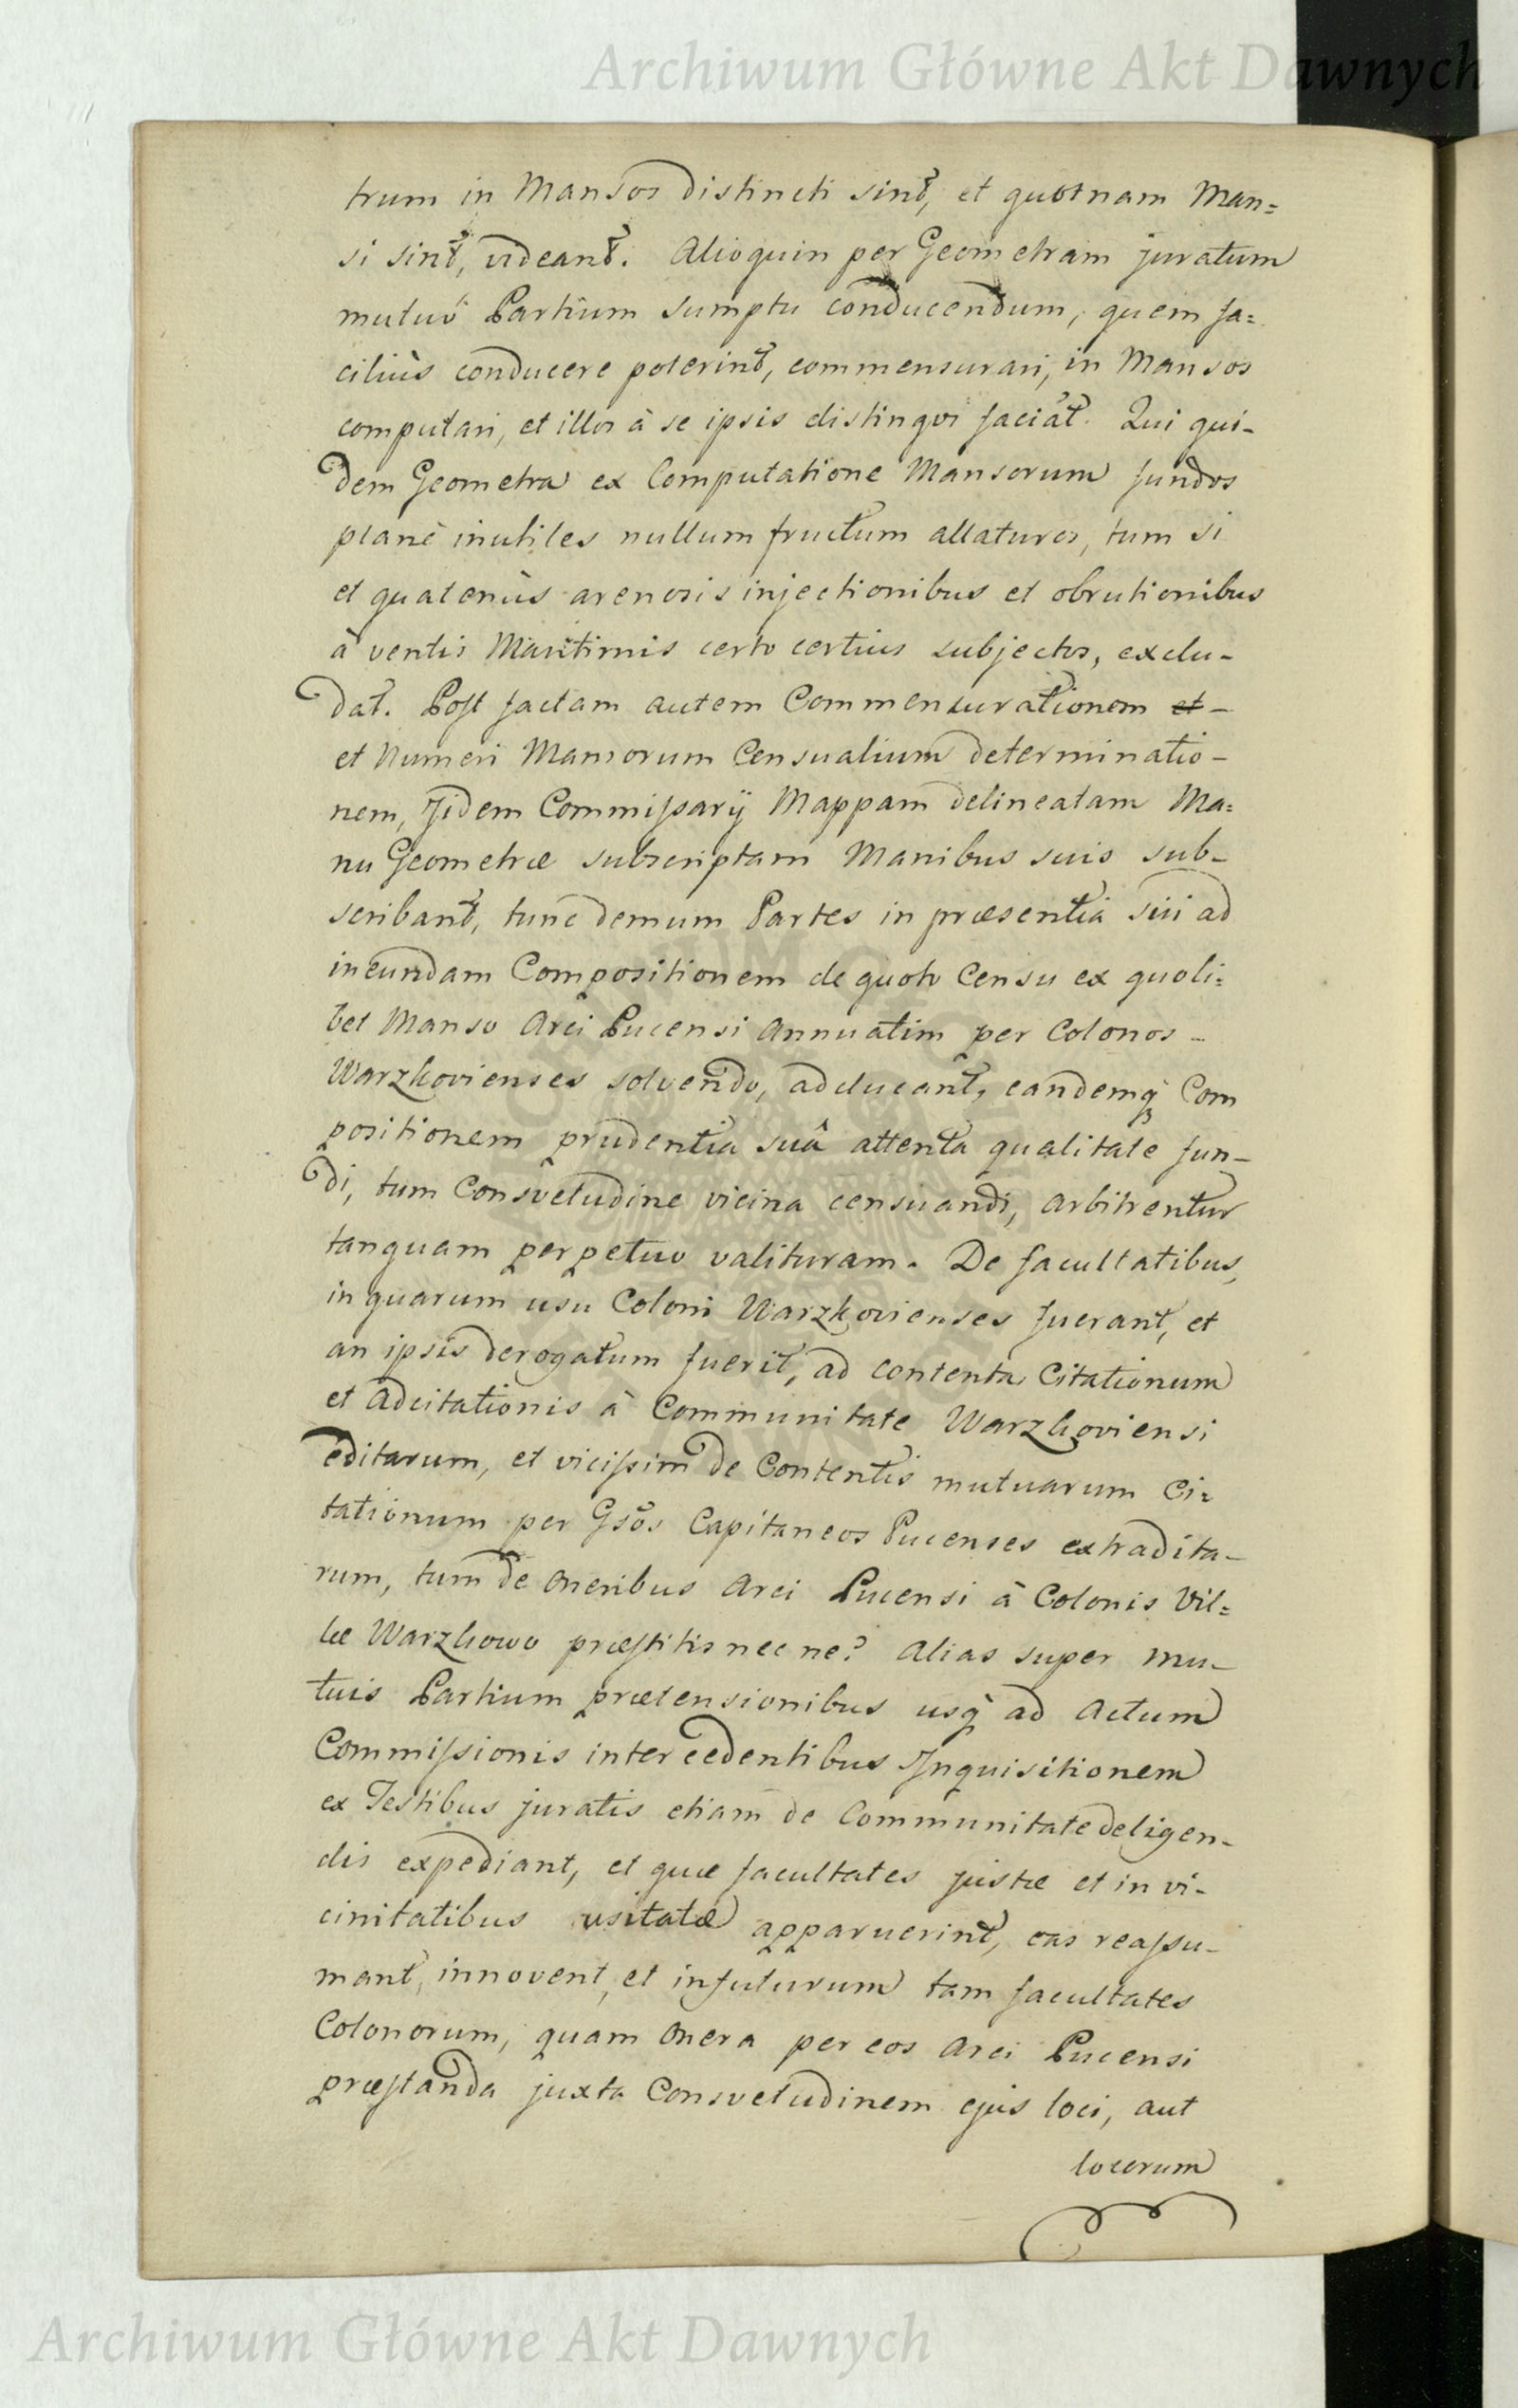 Archiwum Główne Akt Dawnych
trum in Mansos distincti sint, et quotnam Man=
si sint, videant. Alioquin per Geometram juratum
mutuô Partium sumptu conducendum, quem fa=
ciliùs conducere poterint, commensurari, in Mansos
computari, et illos à se ipsis distingvi faciāt. Qui qui-
dem Geometra ex Computatione Mansorum fundos
planè inutiles nullum fructum allaturos, tum si
et quatenùs arenosis injectionibus et obrutionibus
à ventis Maritimis certo certius subjectos, exclu-
dat. Post factam autem Commensurationem et -
et Numeri Mansorum Censualium determinatio-
nem, Jidem Commissarÿ Mappam delineatam Ma=
nu Geometræ subscriptam Manibus suis sub-
scribant, tunc demum Partes in præsentia sui ad
ineundam Compositionem de quoto Censu ex quoli=
bet Manso Arci Pucensi Annuatim per Colonos -
Warzkovienses solvendo, adducant, eandemq́ Com
positionem prudentia suâ attenta qualitate fun-
di, tum Consvetudine vicina censuandi, arbitrentur
tanquam perpetuo valituram. De facultatibus,
in quarum usu Coloni Warzkovienses fuerant, et
an ipsis derogatum fuerit, ad contenta Citationum
et Adcitationis à Communitate Warzkoviensi
editarum, et vicissim de Contentis mutuarum Ci=
tationum per Gsōs Capitaneos Pucenses extradita-
rum, tum de Oneribus Arci Pucensi à Colonis Vil=
læ Warzkowo præstitis nec ne? Alias super mu-
tuis Partium prætensionibus usq́ ad Actum
Commissionis intercedentibus Jnquisitionem
ex Testibus juratis etiam de Communitate deligen-
dis expediant, et quæ facultates justæ et in vi-
cinitatibus usitatæ apparuerint, eas reassu-
mant, innovent, et in futurum tam facultates
Colonorum, quam Onera per eos Arci Pucensi
præstanda juxta Consvetudinem ejus loci, aut
locorum
Archiwum Główne Akt Dawnych